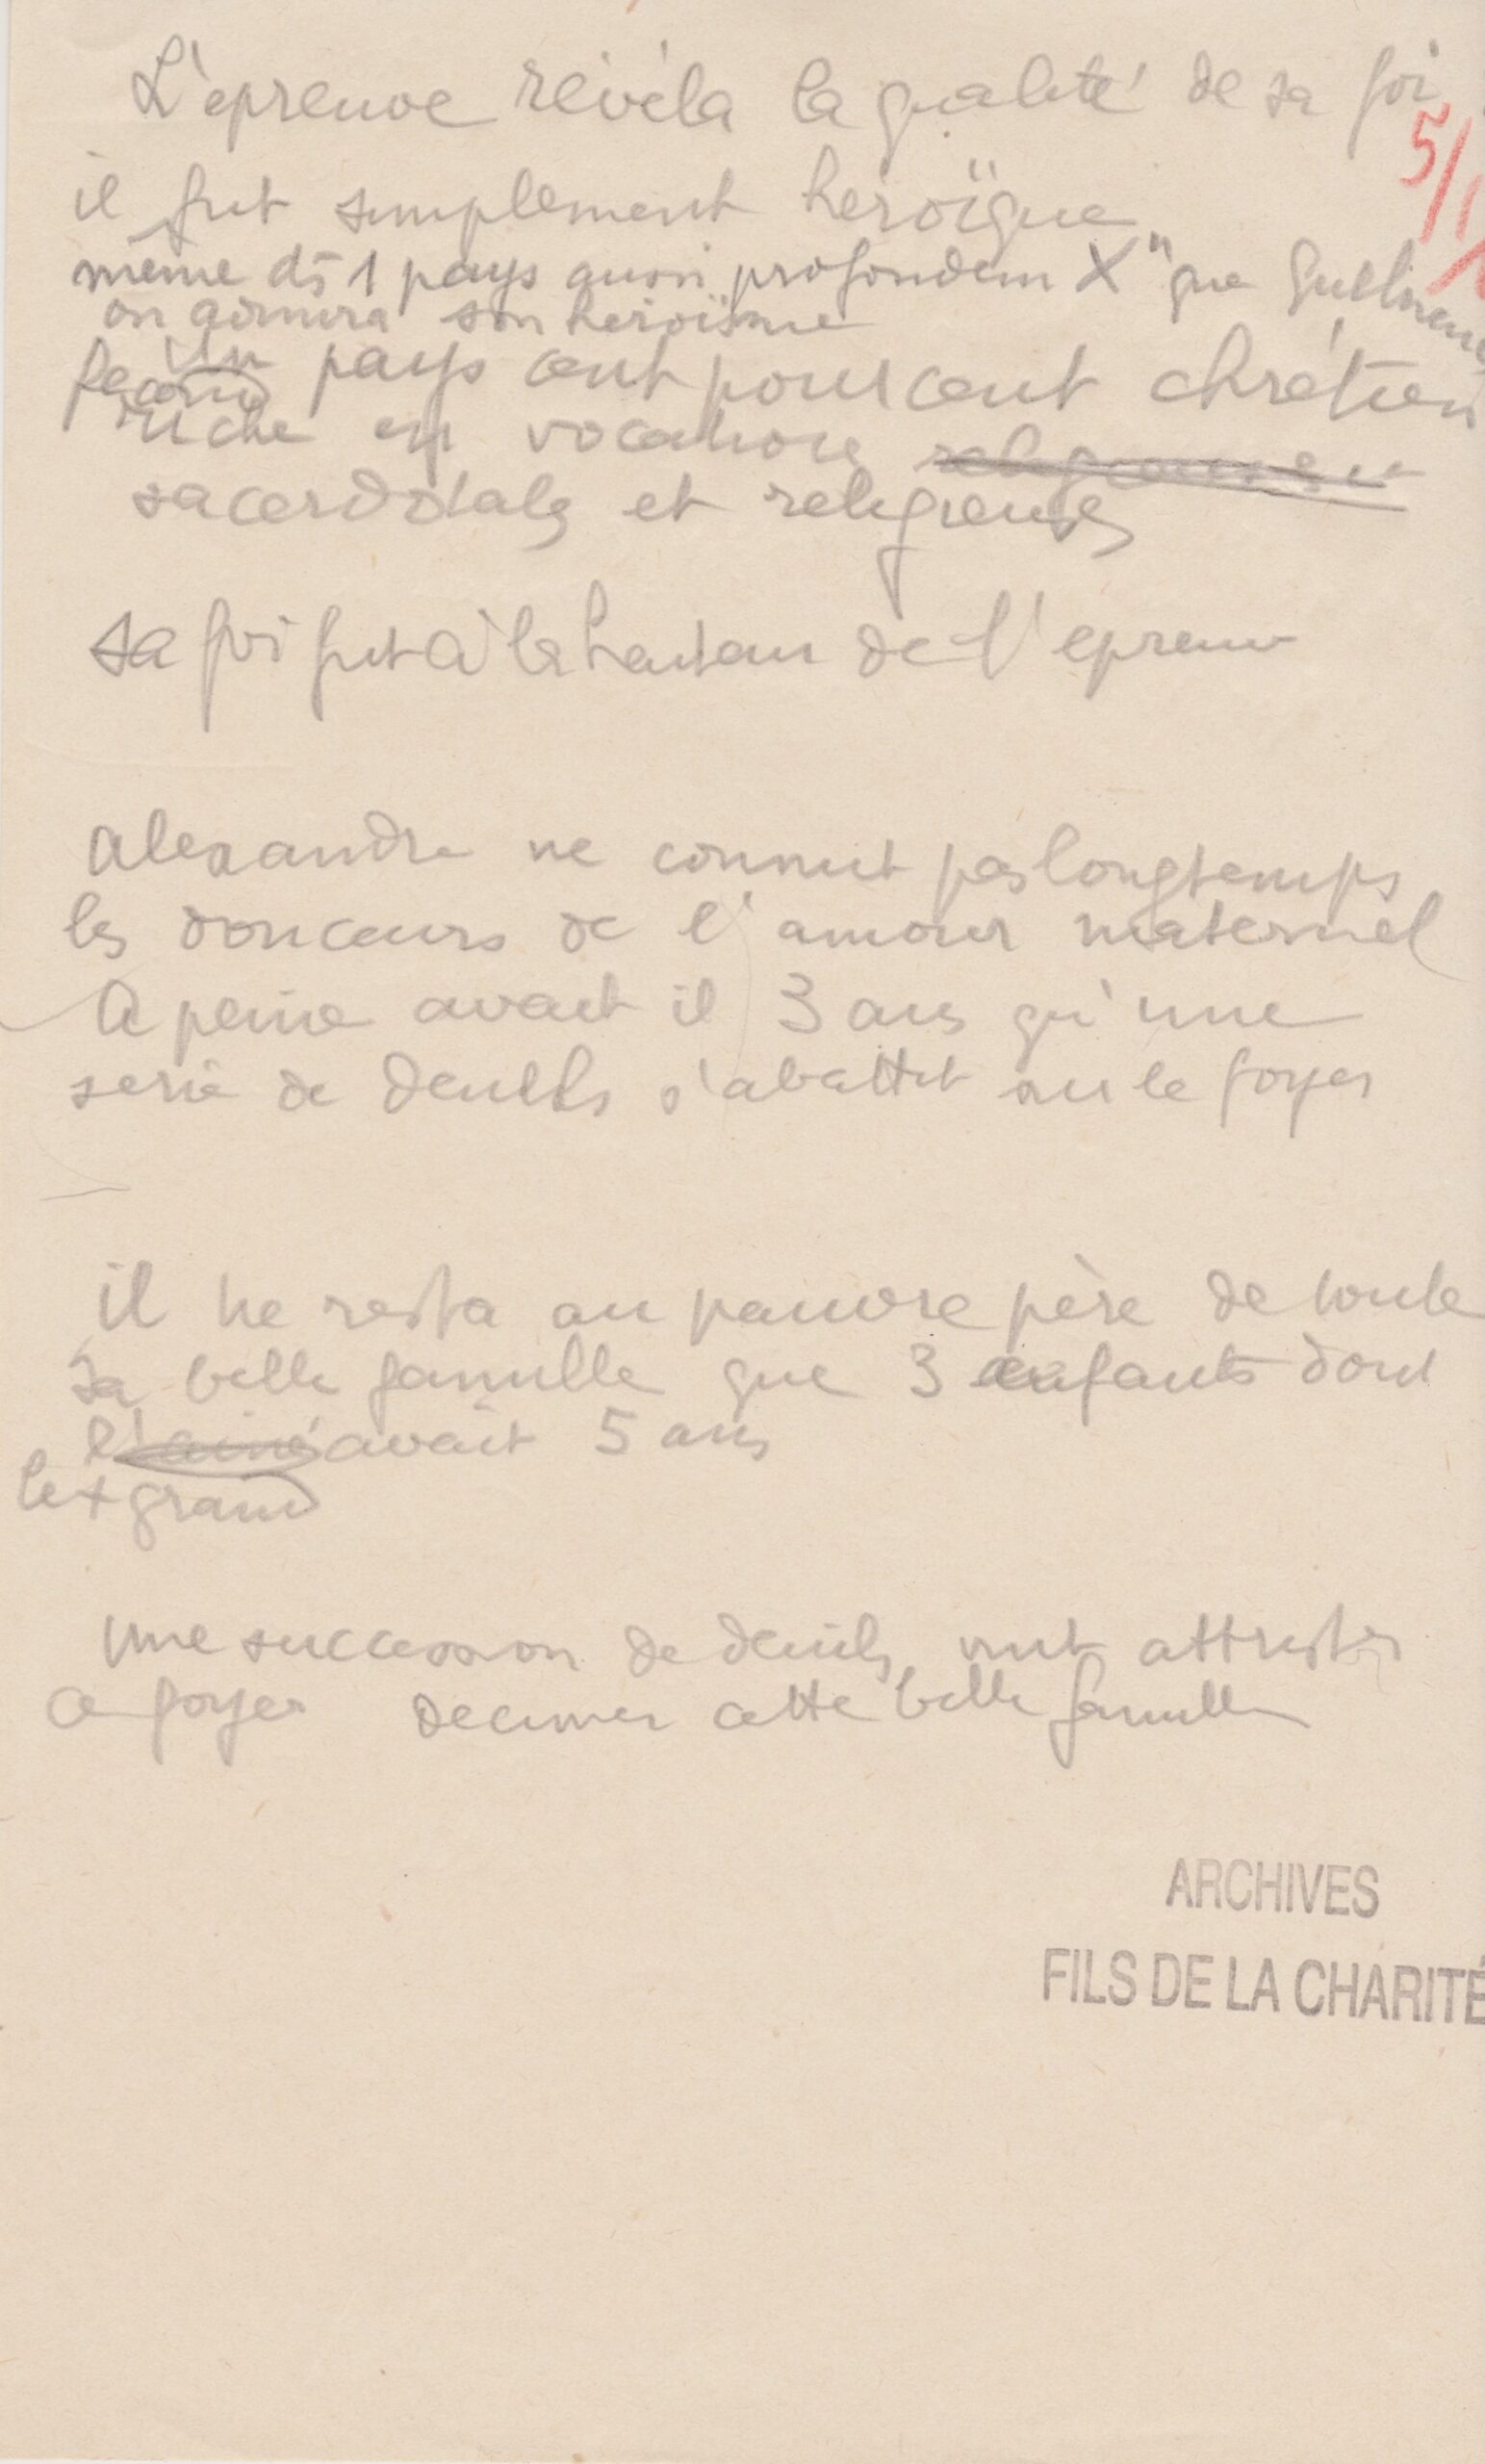 L'epreuve révéla la qualité de sa foi
5/1
il fut simplement heroïque
même ds 1 pays aussi profondem X" que
on admira son heroïsme
Un pays cent pour cent chrétien
fecond
riche en vocations religieuses
sacerdotales et religieuses
sa foi fut à la hauteur de l'epreuve
Alexandre ne connut pas longtemps
les douceurs de l'amour maternel
A peine avait il 3 ans qu'une
serie de deuils s'abattit sur le foyer
il ne resta au pauvre père de toute
sa belle famille que 3 enfants dont
l'ainé avait 5 ans
le + grand
Une succession de deuils vint attrister
ce foyer decimer cette belle famille
ARCHIVES
FILS DE LA CHARITÉ